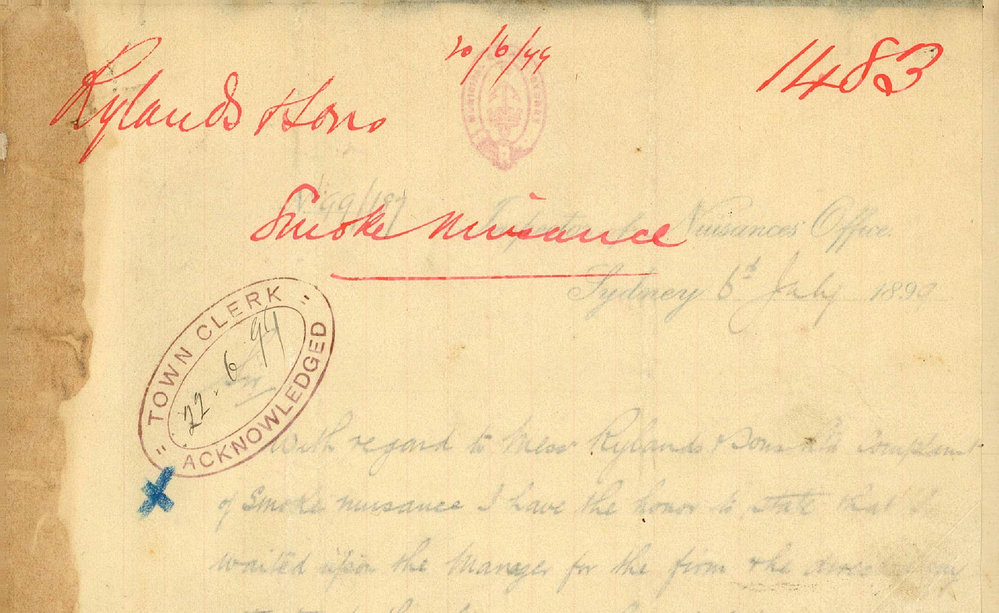 20/6/99
1483
Rylands & Sons
99/187
Smoke Nuisance
Nuisances Office.
Sydney 6th July 189
" TOWN CLERK "
22.6.99
ACKNOWLEDGED
Sir
With regard to Mess Rylands & Sons complaint
of Smoke nuisance I have the honor to state that I
waited upon the Manager for the firm & he